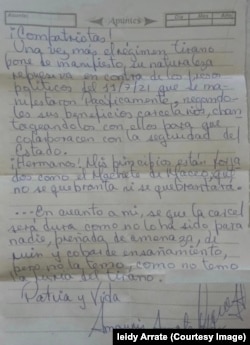 Apuntes
¡Compatriotas!
Una vez más el régimen tirano
pone de manifiesto, su naturaleza
represiva en contra de los presos
políticos del 11/7/21 que se ma-
nifestaron pacíficamente, negando-
les sus beneficios carcelarios, chan-
tageandolos con ellos para que
colaboracen con la seguridad del
Estado.
¡Hermano! Mis principios están forja
dos como el Machete de Maceo, que
no se quebranta ni se quebrantará.
...En cuanto a mi, se que la carcel
será dura como no lo ha sido para
nadie, preñada de amenaza, de
ruin y cobarde ensañamiento,
pero no la temo, como no temo
la furia del tirano.
Patria y Vida
leidy Arrate (Courtesy Image)